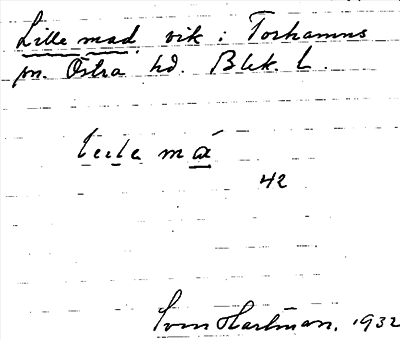 Lille mad, vik i Torhamns
sn. Östra hd. Blek. l.
má
42
Sven Hartman, 1932